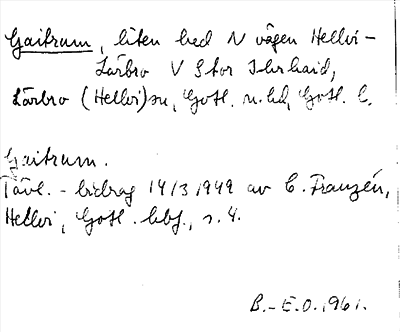 Gaitrum, liten hed N vägen Hellvi-
Lärbro V Stor Ihrhaid,
Lärbro (Hellvi) sn, Gotl. n. hd, Gotl. l.
Gaitrum.
Tävl.-bidrag 14/3 1949 av C. Franzén,
Hellvi, Gotl. hbf., s. 4.
B.-E.O. 1961.